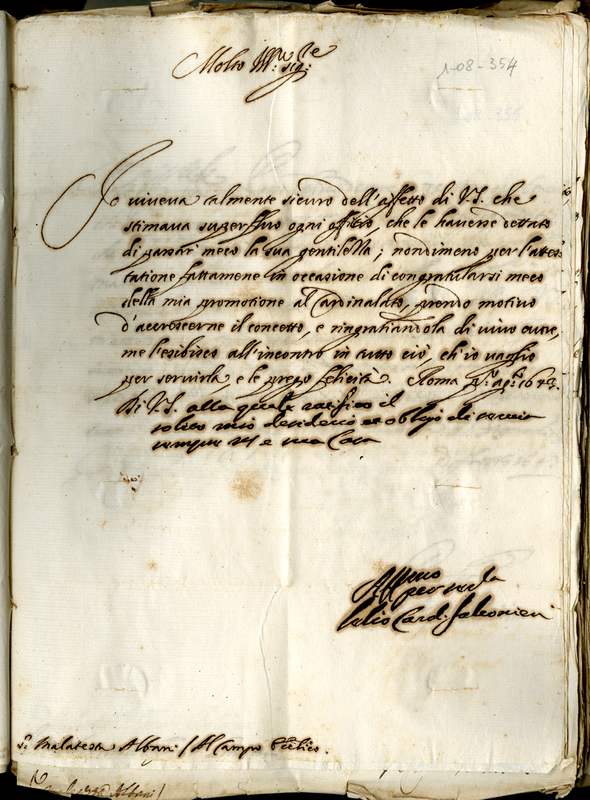 Molto Ill.re sig.re
1-08-354
Io viveva talmente sicuro dell'affetto di V.S. che
stimava superfluo ogni offitio, che le havesse dettato
di passar meco la sua gentilezza; nondimeno per l'attes-
tatione fattamene in occasione di congratularsi meco
della mia promotione al Cardinalato, prendo motivo
d'accrescerne il concetto, e ringratiandola di vivo cuore,
me l'esibisco all'incontro in tutto ciò, ch'io vaglio
per servirla e le prego felicità. Roma p.o ag.to 1643
Di V.S. alla quale ratifico il
solito mio desiderio et obligo di servir
sempre e sua Casa
Aff.mo per ser.la
Lelio Card. Falconieri
S.r Malatesta Albani / Al Campo Ecc.lico.
Albani /